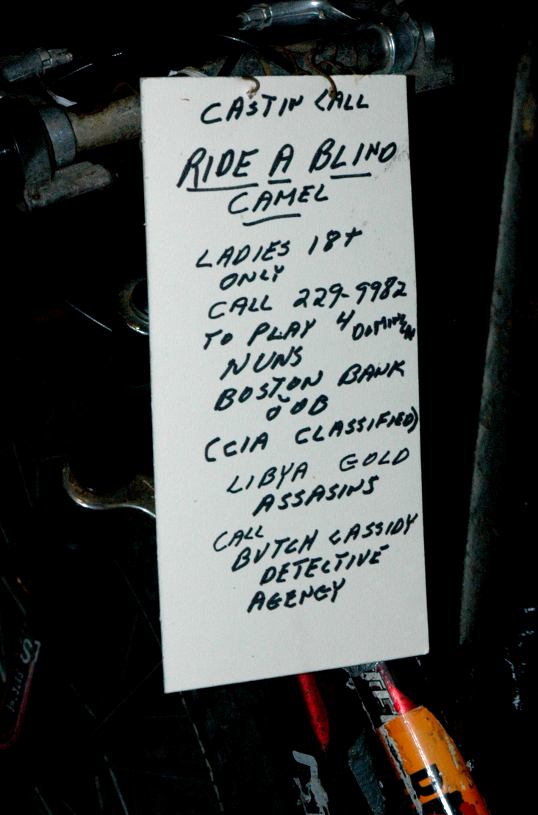 CASTIN CALL
RIDE A BLIND
CAMEL
LADIES 18+
ONLY
CALL 229-9982
TO PLAY 4 DOMINICAN
NUNS
BOSTON BANK
JOB
(CIA CLASSIFIED)
LIBYA GOLD
ASSASINS
CALL
BUTCH CASSIDY
DETECTIVE
AGENCY